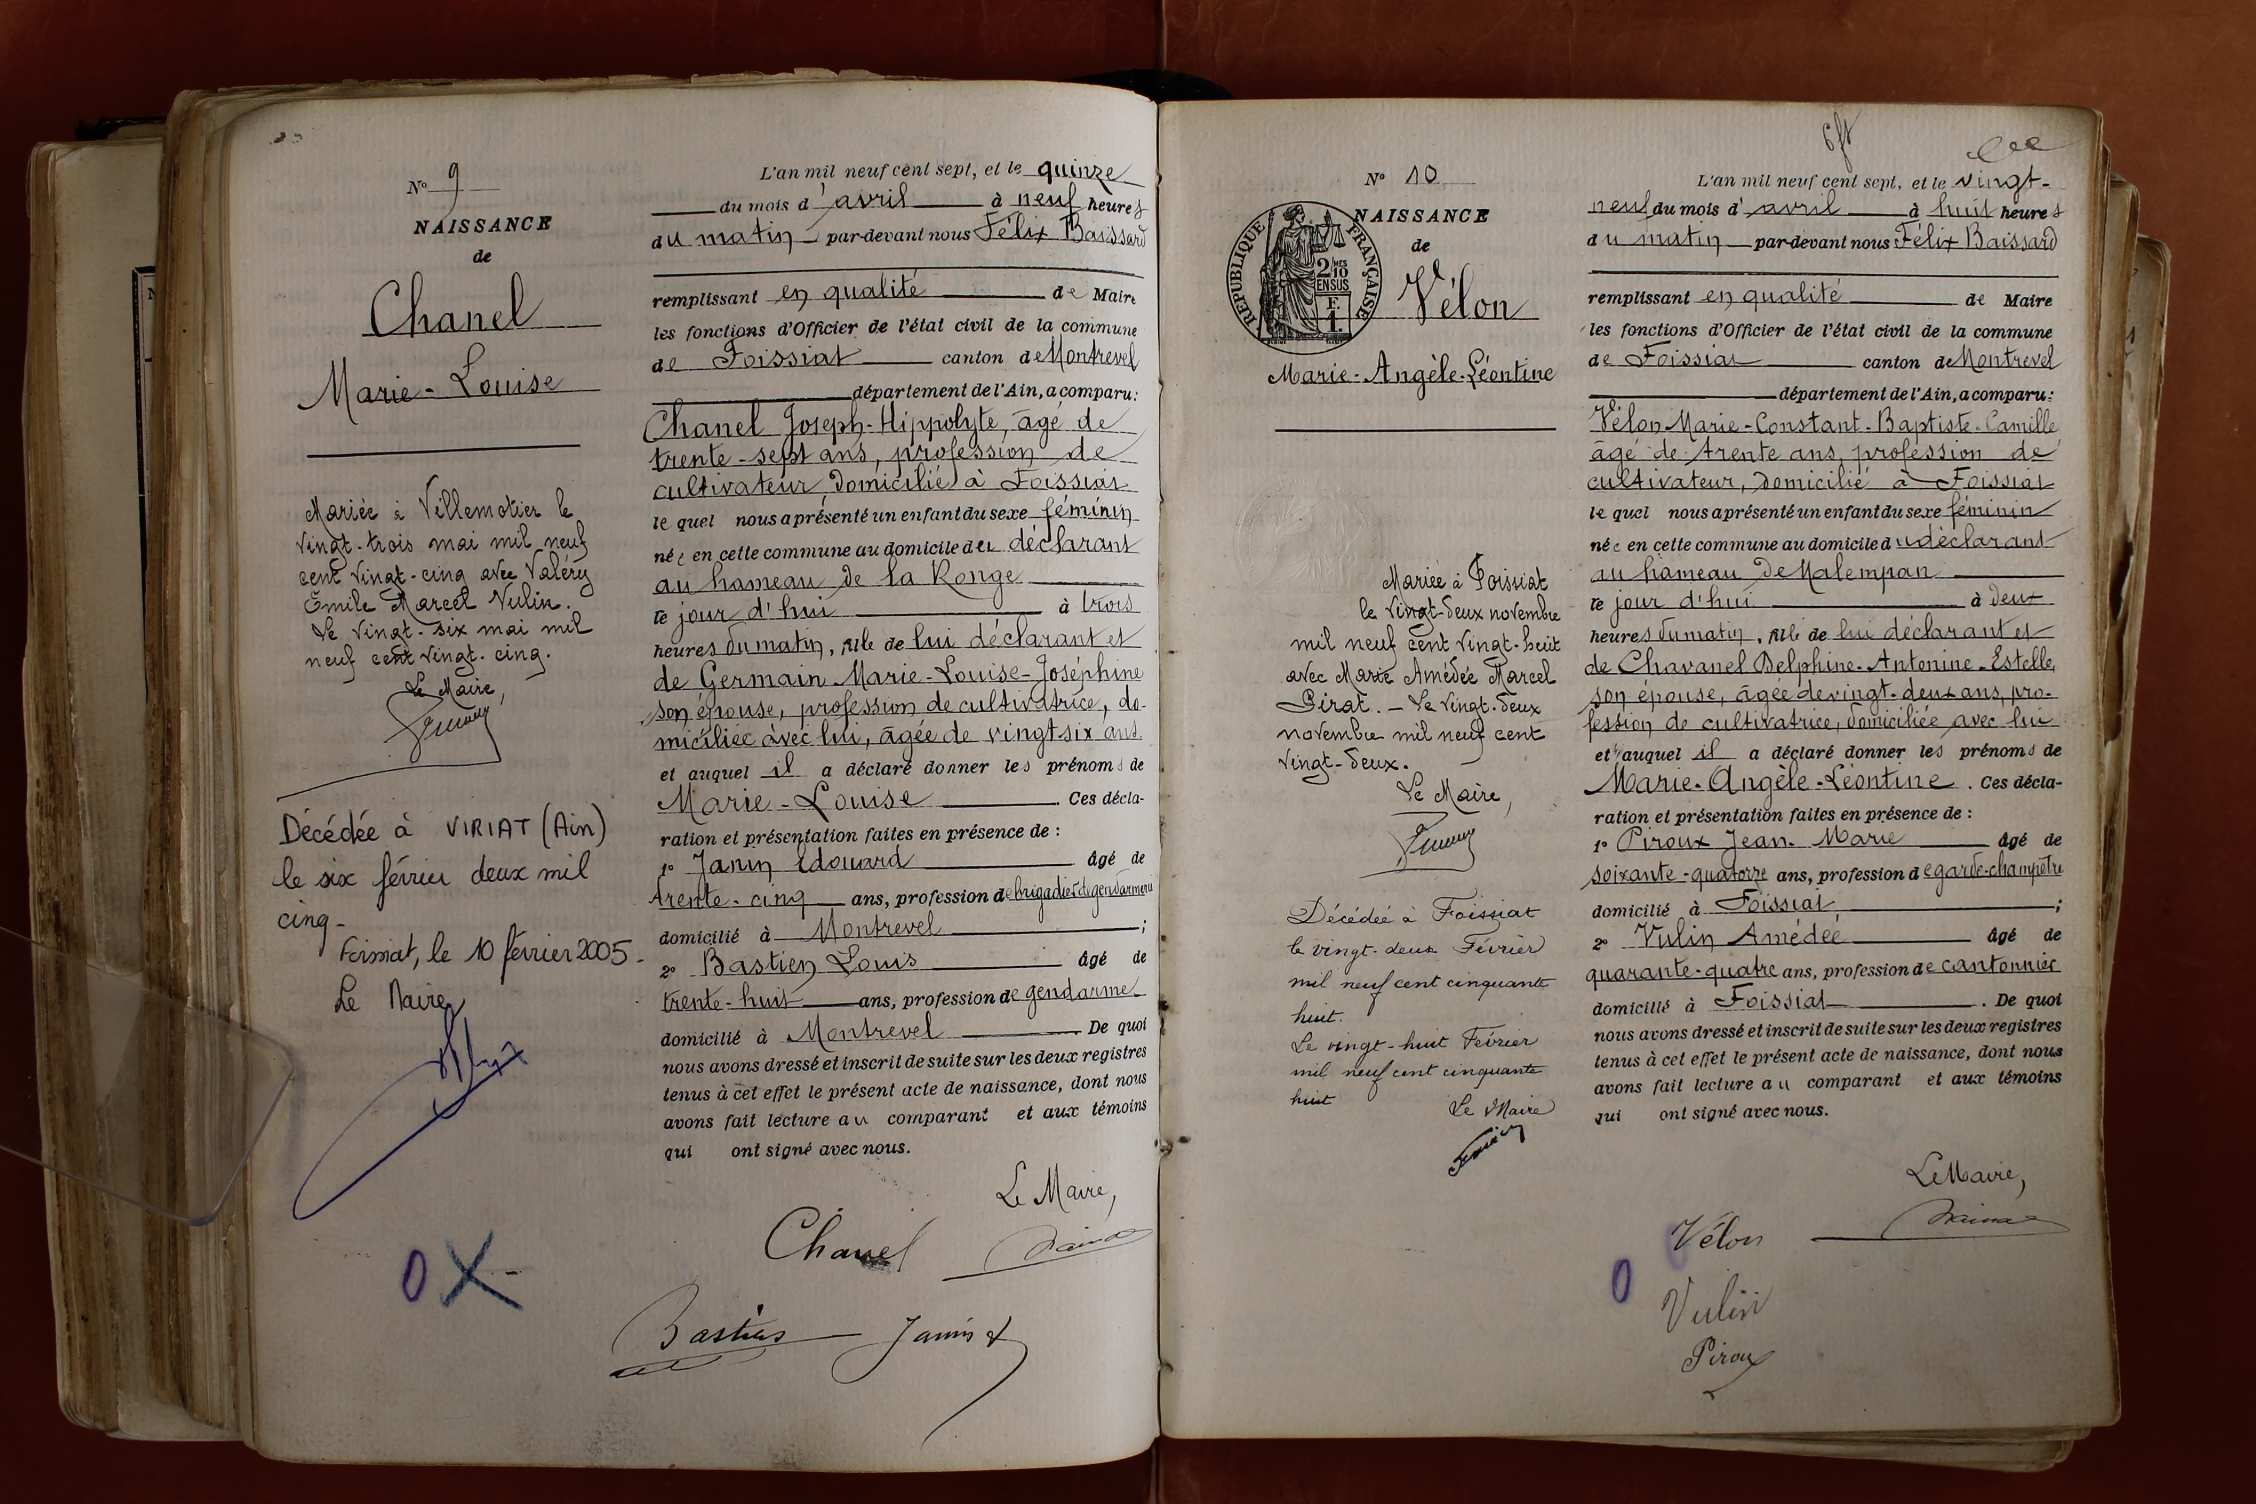 N° 9
NAISSANCE
de
Chanel
Marie-Louise
Mariée à Villemotier le
vingt-trois mai mil neuf
cent vingt-cinq avec Valéry
Émile Marcel Vulin.
Le vingt-six mai mil
neuf cent vingt-cinq.
Le Maire,
Décédée à VIRIAT (Ain)
le six février deux mil
cinq-
Foissiat, le 10 février 2005-
Le Maire
O X-
L'an mil neuf cent sept, et le quinze
du mois d'avril à neuf heures
du matin par-devant nous Félix Baissard
remplissant en qualité de Maire
les fonctions d'Officier de l'état civil de la commune
de Foissiat canton de Montrevel
département de l'Ain, a comparu:
Chanel Joseph-Hippolyte, âgé de
trente-sept ans, profession de
cultivateur, domicilié à Foissiat
lequel nous a présenté un enfant du sexe féminin
née en cette commune au domicile du déclarant
au hameau de la Ronge
ce jour d'hui à trois
heures du matin, fille de lui déclarant et
de Germain Marie-Louise-Joséphine
son épouse, profession de cultivatrice, do-
miciliée avec lui, âgée de vingt-six ans.
et auquel il a déclaré donner les prénoms de
Marie-Louise. Ces décla-
ration et présentation faites en présence de :
1° Janin Edouard âgé de
trente-cinq ans, profession de brigadier de gendarmerie
domicilié à Montrevel ;
2° Bastien Louis âgé de
trente-huit ans, profession de gendarme
domicilié à Montrevel De quoi
nous avons dressé et inscrit de suite sur les deux registres
tenus à cet effet le présent acte de naissance, dont nous
avons fait lecture au comparant et aux témoins
qui ont signé avec nous.
Le Maire,
Chanel
Bastien Janin
N° 10
NAISSANCE
de
RÉPUBLIQUE FRANÇAISE
2/10 EN SUS
Vélon
Marie-Angèle-Léontine
Mariée à Foissiat
le vingt-deux novembre
mil neuf cent vingt-huit
avec Marie Amédée Marcel
Pirat. - Le vingt-deux
novembre mil neuf cent
vingt-deux.
Le Maire,
Décédée à Foissiat
le vingt-deux Février
mil neuf cent cinquante
huit.
Le vingt-huit Février
mil neuf cent cinquante
huit
Le Maire
L'an mil neuf cent sept, et le vingt-
neuf du mois d'avril à huit heures
du matin par-devant nous Félix Baissard
remplissant en qualité de Maire
les fonctions d'Officier de l'état civil de la commune
de Foissiat canton de Montrevel
département de l'Ain, a comparu:
Vélon Marie-Constant-Baptiste-Camille
âgé de trente ans, profession de
cultivateur, domicilié à Foissiat
lequel nous a présenté un enfant du sexe féminin
née en cette commune au domicile du déclarant
au hameau de Malempan
ce jour d'hui à deux
heures du matin, fille de lui déclarant et
de Chavanel Delphine-Antonine-Estelle,
son épouse, âgée de vingt-deux ans, pro-
fession de cultivatrice, domiciliée avec lui
et auquel il a déclaré donner les prénoms de
Marie-Angèle-Léontine. Ces décla-
ration et présentation faites en présence de :
1° Piroux Jean-Marie âgé de
soixante-quatorze ans, profession de garde-champêtre
domicilié à Foissiat ;
2° Vulin Amédée âgé de
quarante-quatre ans, profession de cantonnier
domicilié à Foissiat. De quoi
nous avons dressé et inscrit de suite sur les deux registres
tenus à cet effet le présent acte de naissance, dont nous
avons fait lecture au comparant et aux témoins
qui ont signé avec nous.
Le Maire,
Vélon
O
Vulin
Piroux